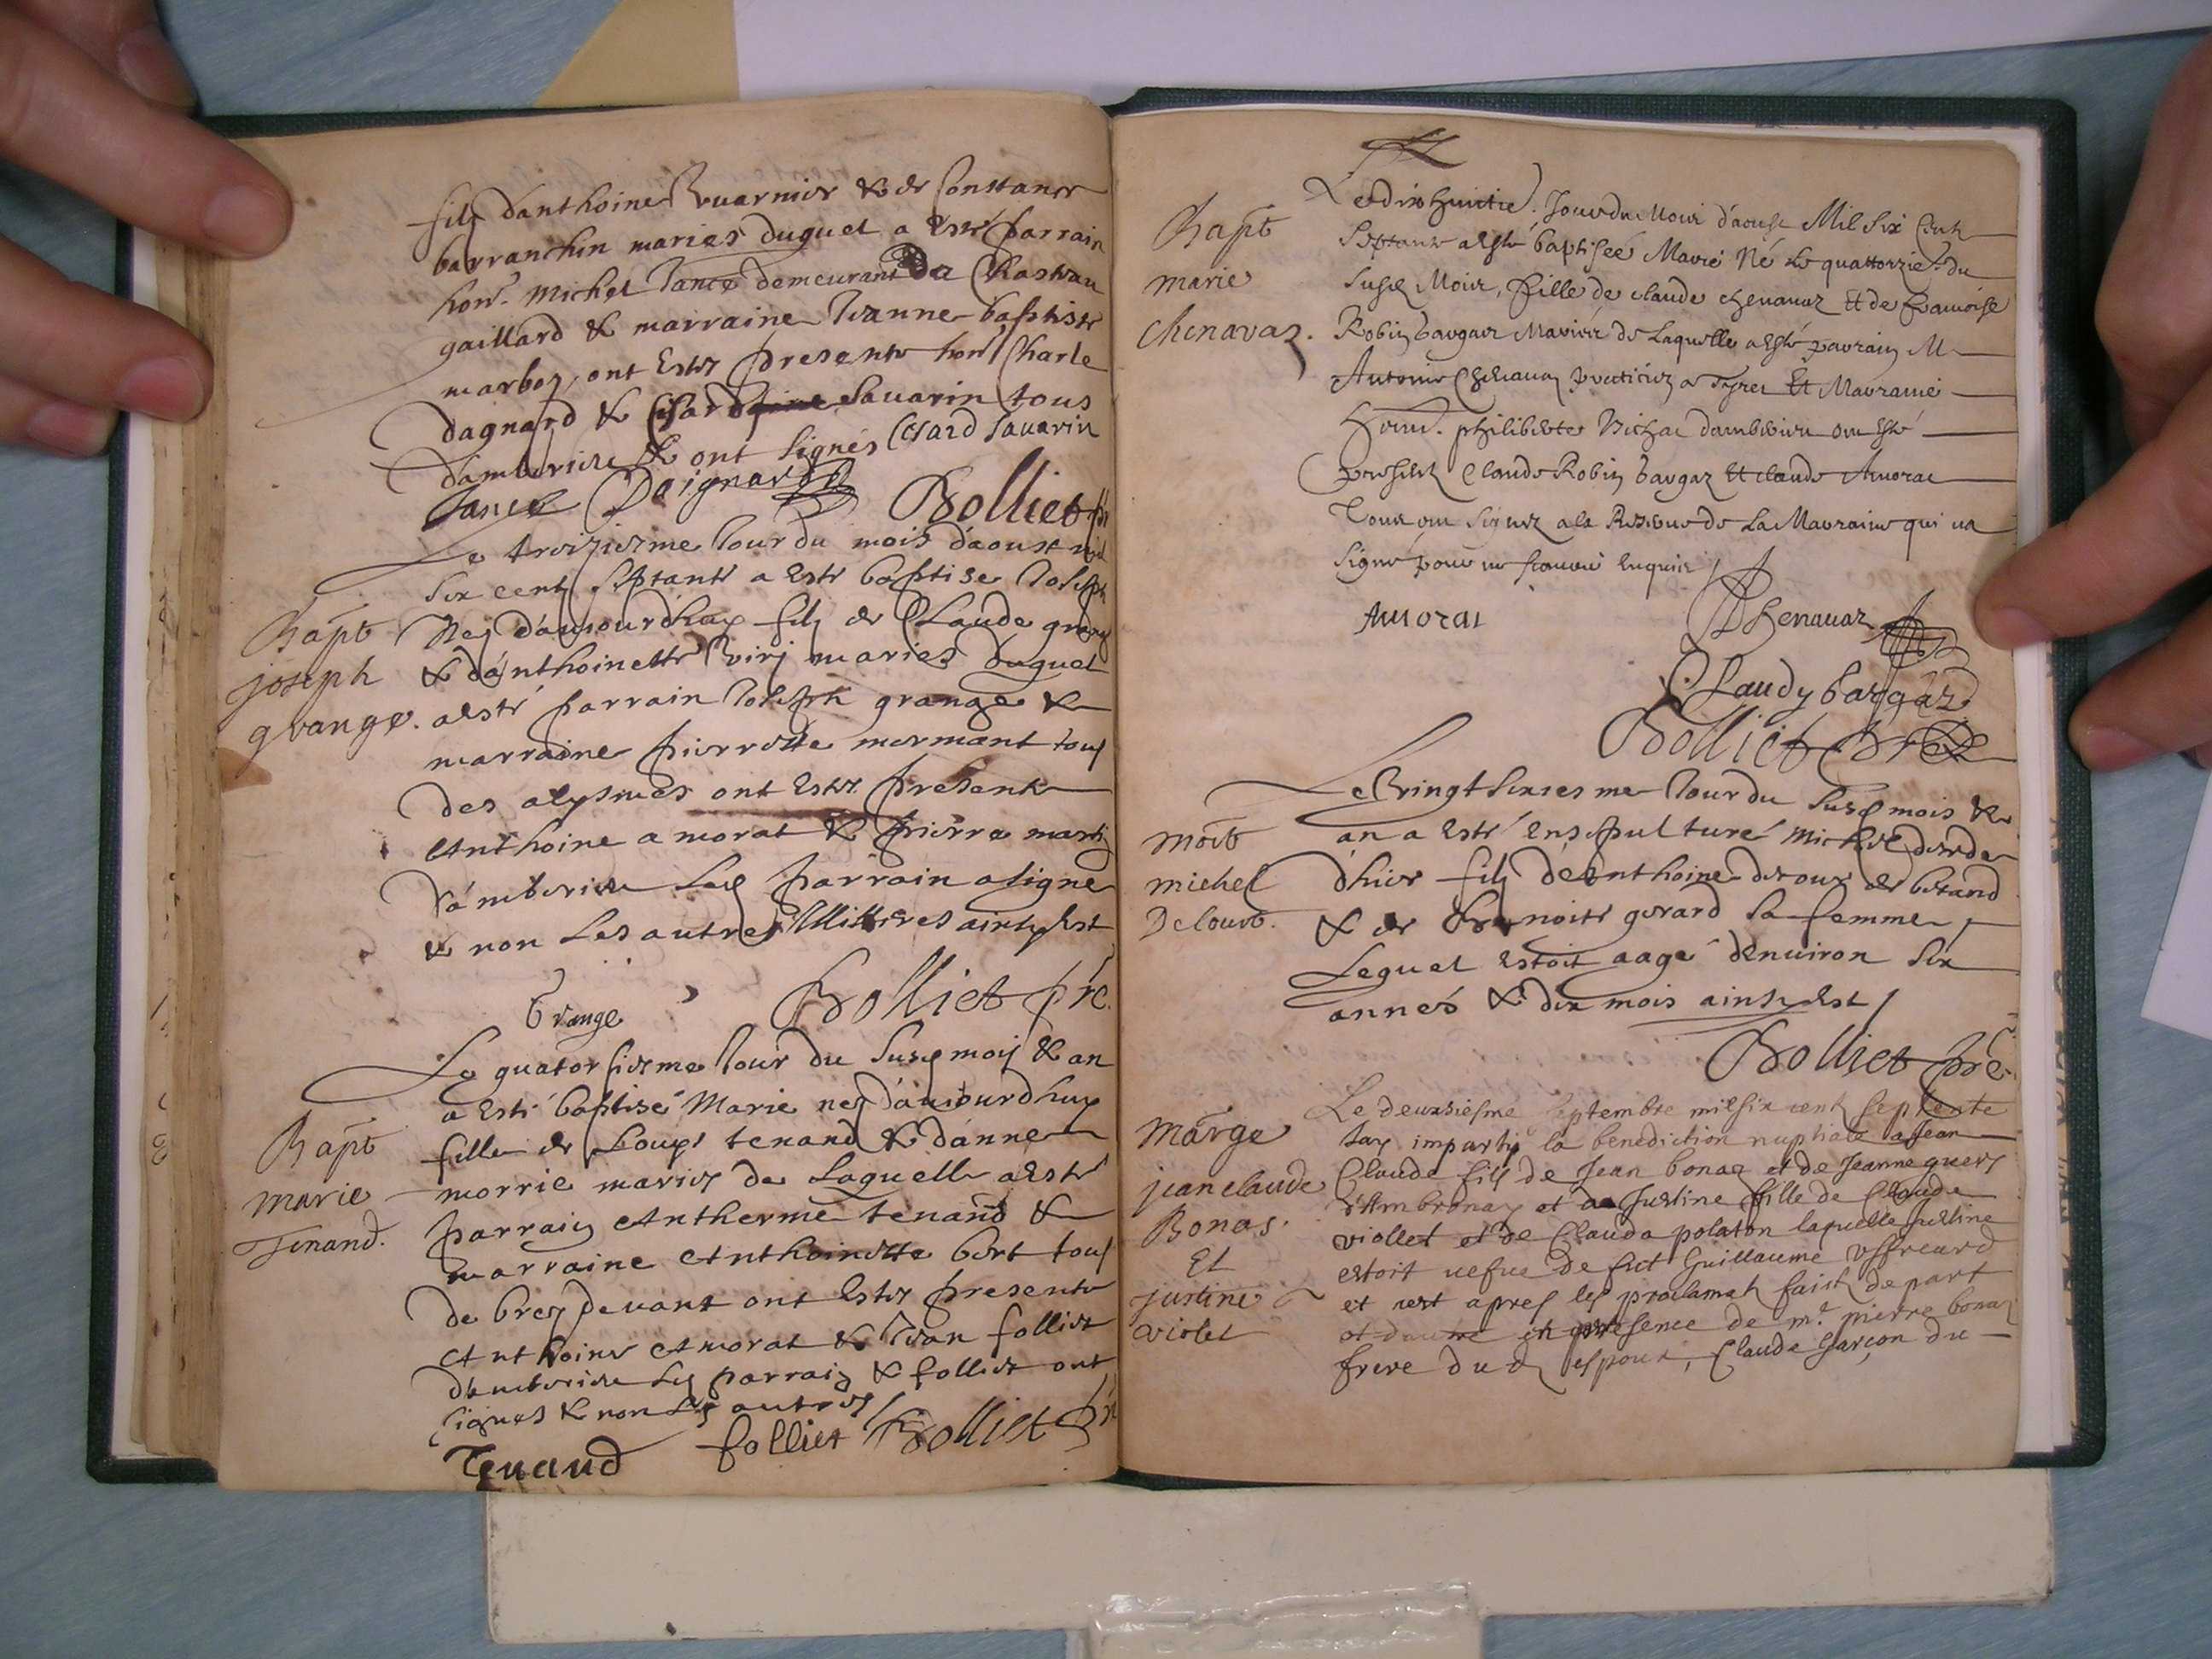 fils danthoine Guarnier & de Constance
barranchin maries duquel a este parrain
hon.e michel Lance demeurant a Chasteau
gaillard & marraine Jeanne baptiste
marboz, ont estez presents hon. Charle
dagnard & Cesard Savarin tous
damberieu & ont signés Cesard Savarin
Lance Daignard Bolliet pre
Le treiziesme Jour du mois daoust mil
six cent septante a este baptise Joseph
Bapt
joseph
grange.
Ney daujourdhuy fils de Claude grange
& danthoinette maries duquel
a esté parrain Joseph grange &
marraine pierrette mermant tous
des alysmes ont estez presents
Anthoine amorat & pierre martin
damberieu led parrain a signe
& non les autres illitteres ainsy est
Grange Bolliet pre.
Le quatorsiesme Jour du susd mois & an
Bapt
marie
Tenand.
a esté baptisé Marie ney daujourdhuy
fille de Louys tenand & danne
morrie mariez de Laquelle a esté
parrain Antherme tenand &
marraine Anthoinette bert tous
de brey devant ont estez presents
Anthoine Amorat & Jean folliet
damberieu led parrain & folliet ont
signés & non les autres
Tenand folliet Bolliet pre
Bapt
marie
Chenavaz.
Le dixhuitie. Jour du Mois d'aoust Mil Six Cents
Septante a esté baptiseé Marie Né Le quattorzie. du
susd Mois, fille de claude chenavaz Et de francoise
Robin bargaz Mariez de Laquelle a esté parrain M
Antoine Chenavaz praticien a Et Marraine
Honn. philiberte Bichat damberieu ont esté
presents Claude Robin bargaz Et claude Amorat
Tous ont signez a la Reserve de La Marraine qui na
signé pour ne scavoir enquise
Amorat Chenavaz
Claudy bargaz
Bolliet pre
mort
michel
Delouvr.
Le vingt sixiesme Jour du susd mois &
an a esté ensepulturé michel
dhier fils danthoine de betand
& de benoite gerard sa femme,
Lequel estoit aagé denuiron six
annes & dix mois ainsy est /
Bolliet pre.
marge
jean claude
Bonas.
Et
justine
violet
Le deuxsiesme septembre mil six cent septente
Jay imparty la benediction nuptiale a Jean
Claude fils de Jean bonaz et de Jeanne guers
d'Ambronay et a Justine fille de Claude
viollet et de Claudia polaton laquelle justine
estoit vefue de fut Guillaume
et cest apres les proclamats faict de part
et dautre en presence de m.r pierre bonaz
frere dud espoux, Claude Garçon du